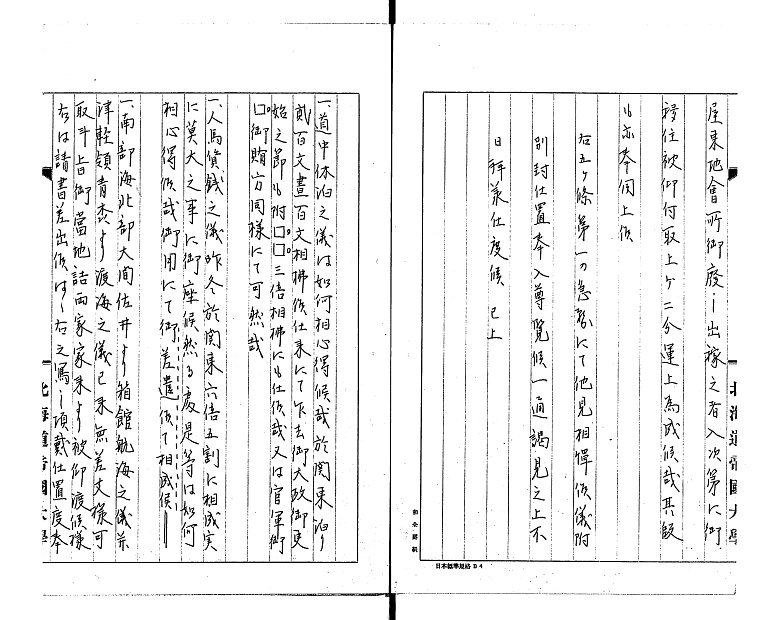 屋東地會所御廢シ出稼之者入次第に御
移住被仰付取上ケ二分運上為成候哉其段
も亦奉伺上候
右五ヶ條第一の急務にて他見相憚候儀附
別封仕置奉入尊覧候一通謁見之上不
日拜美仕度候 已上
北海道帝國大學
日本標準規格 B4
一、道中休泊之儀は如何相心得候哉於関東泊り
貳百文晝一百文相拂候仕来にて乍去御大政御更
始之節も附□□三倍相拂にも仕候哉又は官軍御
□御賄方同様にて可然哉
一、人馬賃銭之儀昨冬於関東六倍五割に相成実
に莫大之事に御座候然る處是等は如何
相心得候哉御用にて御差遣候て相成候
一、南部海北部大間佐井より箱館航海之儀并
津軽領青森より渡海之儀已来無差支様可
取斗旨御當地詰両家家来より被仰渡候様
右は請書差出候はゝ右之寫し頂戴仕置度奉
北海道帝國大學